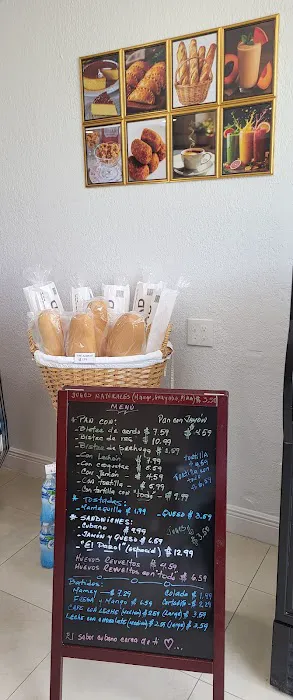 JUGOS NATURALES (Mango, Guayaba, Piña) $ 3.50
MENÚ
* PAN CON: Pan con Jamón
- Bistec de cerdo $ 7.59 $ 4.59
- Bistec de res $ 10.99
- Bistec de pechuga $ 8.59
- Con Lechón $ 7.99
- Con croquetas $ 5.59
- Con Jamón $ 4.59
- Con tortilla $ 4.59
- Con tortilla con "todo" $ 7.99
* Tostadas:
- Mantequilla $ 1.99 - QUESO $ 3.59
* SANDWICHES:
- Cubano $ 9.99
- Jamón y Queso $ 6.59
- (especial) $ 12.99
HUEVOS REVUELTOS $ 4.59
HUEVOS REVUELTOS con todo $ 6.59
Batidos:
Mamey $ 7.29 Colada $ 1.99
FRESA y Mango $ 6.59 Cortadito $ 2.29
CAFE CON LECHE (Medium) $ 2.59 (Large) $ 3.59
Leche con chocolate (Medium) $ 2.59 (Large) $ 3.59
El Sabor cubano cerca de ti